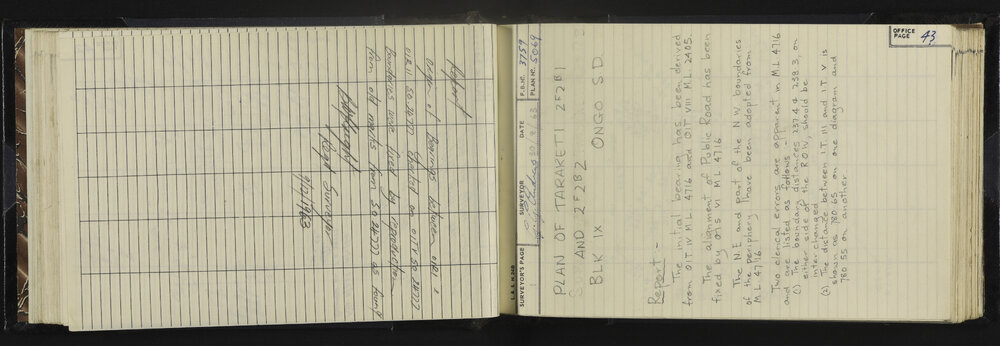 Report
Origin of Bearings between old
Boundaries were fixed by reproduction
from old marks from S.O. 34777 as found
Regd Surveyor
9/12/1963
L. & S. N. 26B
SURVEYOR'S PAGE
SURVEYOR
DATE
30/9/63
F.B. Nº. 3759
PLAN Nº. 5069
OFFICE
PAGE 43
PLAN OF TARAKETI 2F2B1
AND 2F2B2
BLK IX ONGO SD
Report -
The initial bearing has been derived
from OIT IV M.L. 4716 and OIT VIII M.L. 2405.
The alignment of Public Road has been
fixed by OITS VI M L 4716
The N.E. and part of the N W boundaries
of the periphery have been adopted from
M L 4716
Two clerical errors are apparent in M.L 4716
and are listed as follows:-
(1) The boundary distances 237.4 & 238.3, on
either side of the R.O.W, should be
interchanged
(2) The distance between I.T. III and I.T V is
shown as 780 65 on one diagram and
780 55 on another